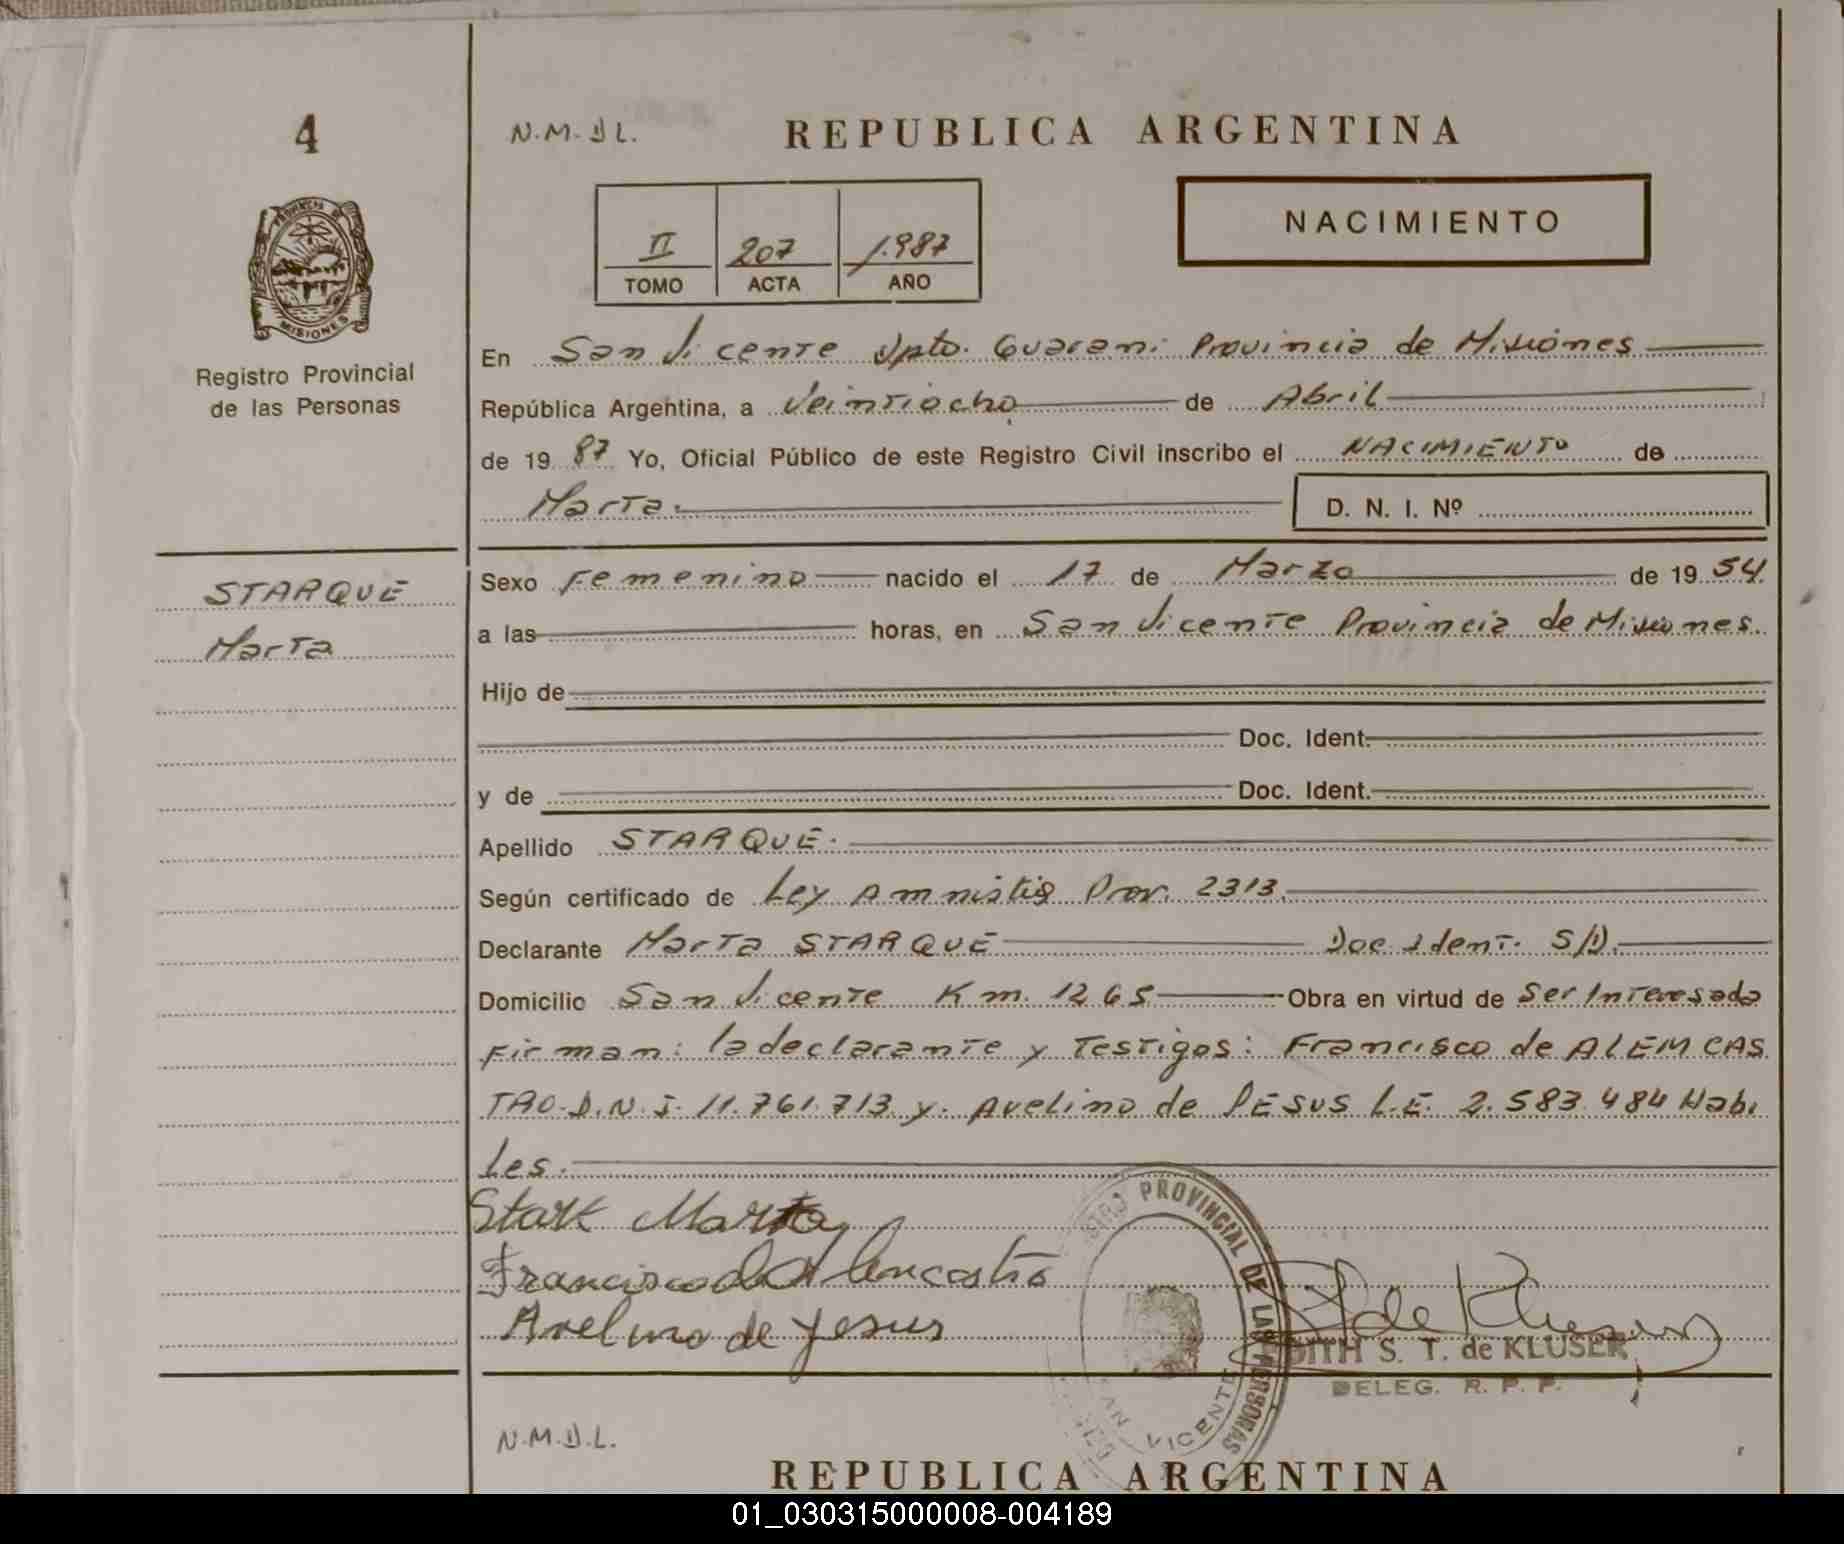 4
N.M.D L.
REPUBLICA ARGENTINA
NACIMIENTO
II 207 1.987
TOMO ACTA AÑO
PROVINCIA DE
MISIONES
Registro Provincial
de las Personas
En San Vicente Dpto. Guarani Provincia de Misiones
República Argentina, a Veintiocho de Abril
de 19 87 Yo, Oficial Público de este Registro Civil inscribo el NACIMIENTO de
Marta. D. N. I. Nº
STARQUE
Marta
Sexo Femenino nacido el 17 de Marzo de 19 54.
a las horas, en San Vicente Provincia de Misiones.
Hijo de
Doc. Ident.
y de Doc. Ident.
Apellido STARQUE.
Según certificado de Ley Amnistia Prov. 2313.
Declarante Marta STARQUE Doc. Ident. S/D.
Domicilio San Vicente Km. 1265 Obra en virtud de Ser Interesada
Firman: la declarante y Testigos: Francisco de ALEMCAS
TRO-D.N.I. 11.761.713 y. Avelino de JESUS L.E. 2.583.484 Habi
les.
Stark Marta
Francisco d Alencastro
Avelino de Jesus
PROVINCIAL DE LAS PERSONAS
VICENTE
EDITH S. T. de KLUSER
DELEG. R. P. P.
N.M.D.L.
REPUBLICA ARGENTINA
01_030315000008-004189